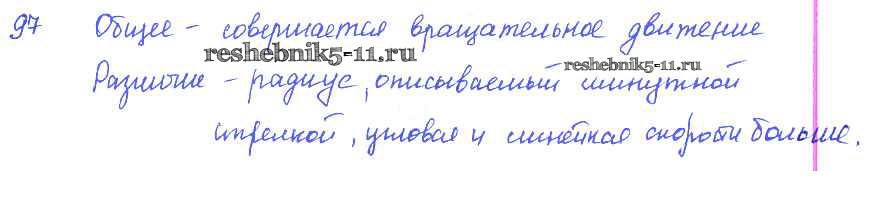 97 Общее – совершается вращательное движение
reshebnik5-11.ru
reshebnik5-11.ru
Различие – радиус, описываемый минутной
стрелкой, угловая и линейная скорости больше.